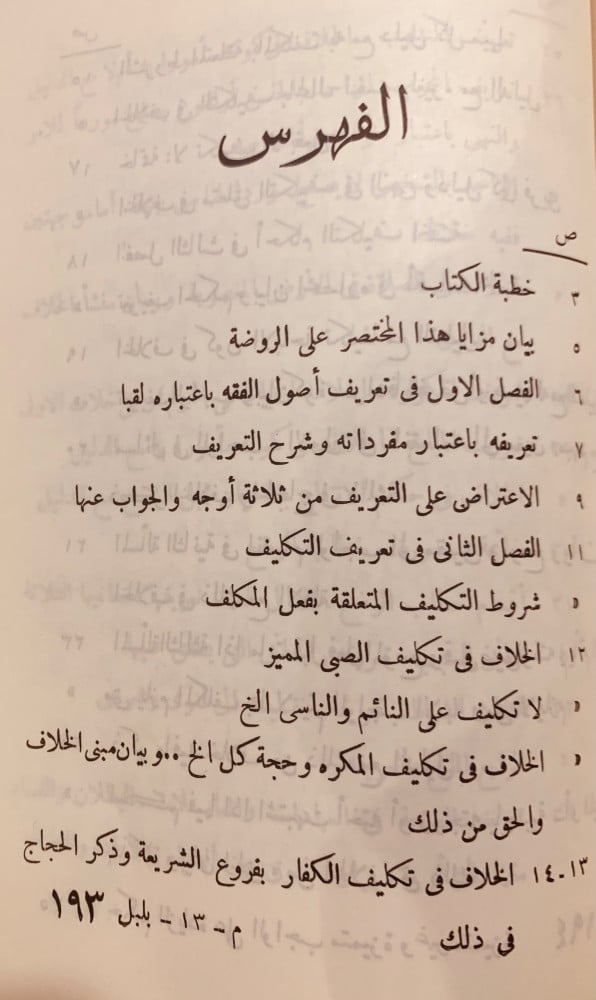 الفهرس
ص
٣ خطبة الكتاب
٥ بيان مزايا هذا المختصر على الروضة
٦ الفصل الاول فى تعريف أصول الفقه باعتباره لقبا
٧ تعريفه باعتبار مفرداته وشرح التعريف
٩ الاعتراض على التعريف من ثلاثة أوجه والجواب عنها
١١ الفصل الثانى فى تعريف التكليف
» شروط التكليف المتعلقة بفعل المكلف
١٢ الخلاف فى تكليف الصبى المميز
» لا تكليف على النائم والناسى الخ
» الخلاف فى تكليف المكره وحجة كل الخ .. وبيان مبنى الخلاف
والحق من ذلك
١٣-١٤ الخلاف فى تكليف الكفار بفروع الشريعة وذكر الحجاج
فى ذلك
م - ١٣ - بلبل ١٩٣